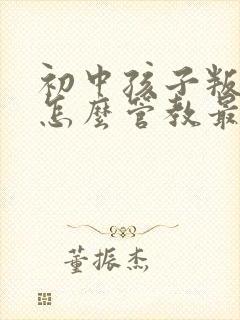 初中孩子叛
怎麼管教最
董振杰